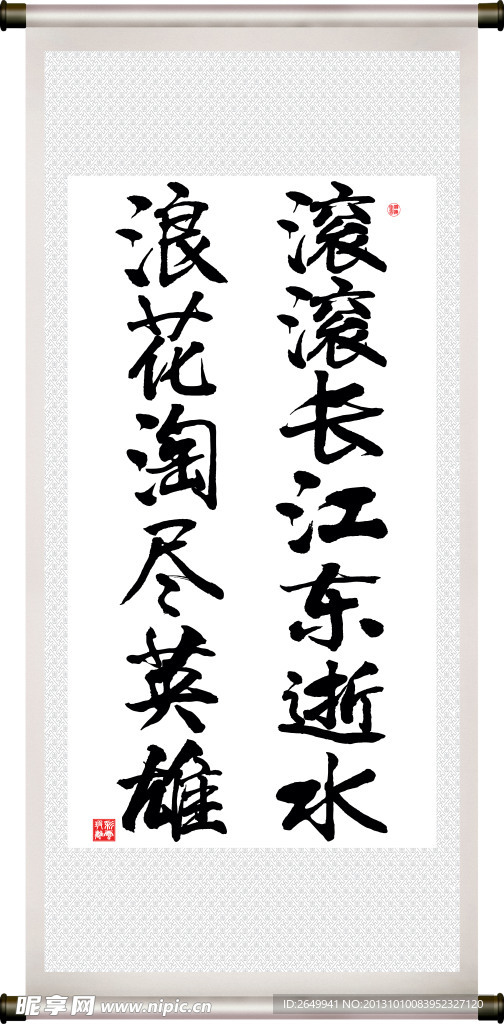 滚滚长江东逝水
浪花淘尽英雄
昵享网 www.nipic.cn
ID:2649941 NO:20131010083952327120